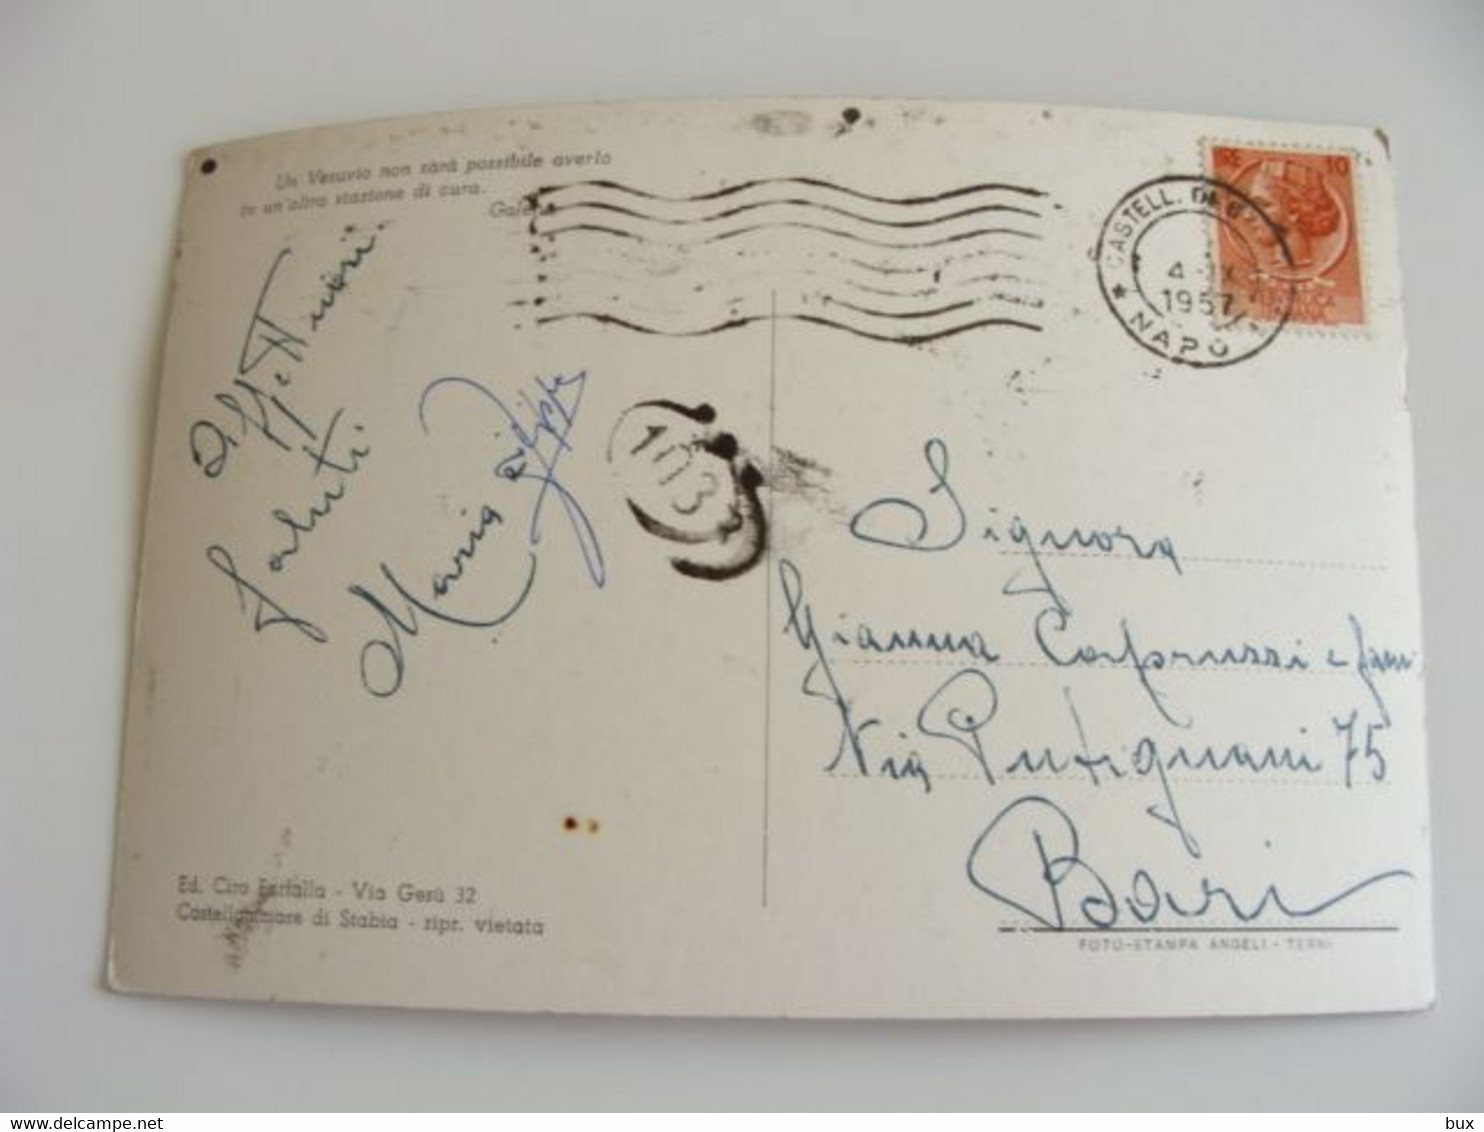 Un Vesuvio non sarà possibile averlo
in un'altra stazione di cura.
Galeno
LIRE 10
CASTELL. DI
4 - IX
1957
NAPO
Affettuosi
saluti
Maria
103
Signora
Gianna Capruzzi e fam
Via Putignani 75
Bari
Ed. Ciro Farfalla - Via Gesù 32
Castellammare di Stabia - ripr. vietata
FOTO-STAMPA ANGELI - TERNI
bux